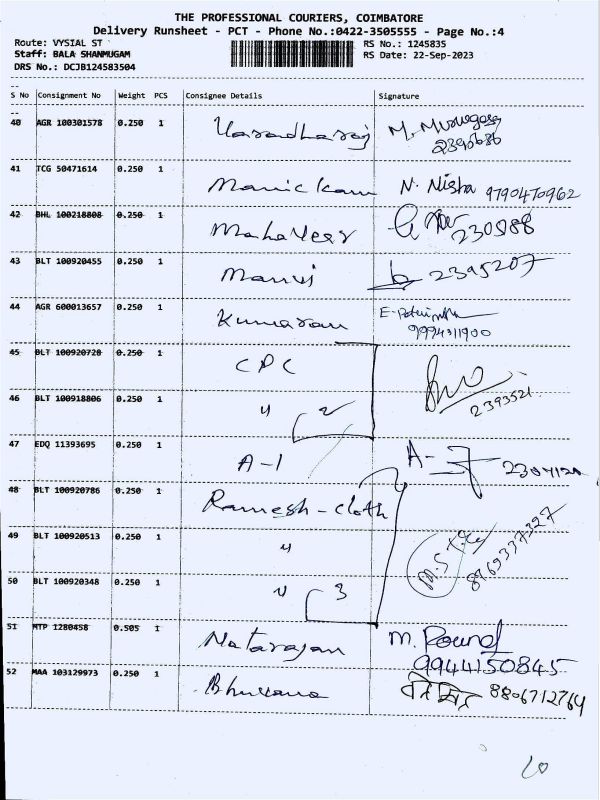 THE PROFESSIONAL COURIERS, COIMBATORE
Delivery Runsheet - PCT - Phone No.:0422-3505555 - Page No.:4
Route: VYSIAL ST
Staff: BALA SHANMUGAM
DRS No.: DCJB124583504
RS No.: 1245835
RS Date: 22-Sep-2023
S No Consignment No Weight PCS Consignee Details Signature
40 AGR 100301578 0.250 1 Varadharaj M. Murugesa
2390686
41 TCG 50471614 0.250 1 Manickam N. Nisha 9790470962
42 BHL 100218808 0.250 1 Mahaveer 230988
43 BLT 100920455 0.250 1 2395207
44 AGR 600013657 0.250 1 Kumaran
9994311900
45 BLT 100920728 0.250 1 CPC
46 BLT 100918806 0.250 1 " 2 2393521
47 EDQ 11393695 0.250 1 A-1 A-
48 BLT 100920786 0.250 1 Ramesh-cloth
49 BLT 100920513 0.250 1 " 8969337327
50 BLT 100920348 0.250 1 " 3
51 MTP 1280458 0.505 1 Natarajan M.
9944150845
52 MAA 103129973 0.250 1 Bhuvana 8806712764